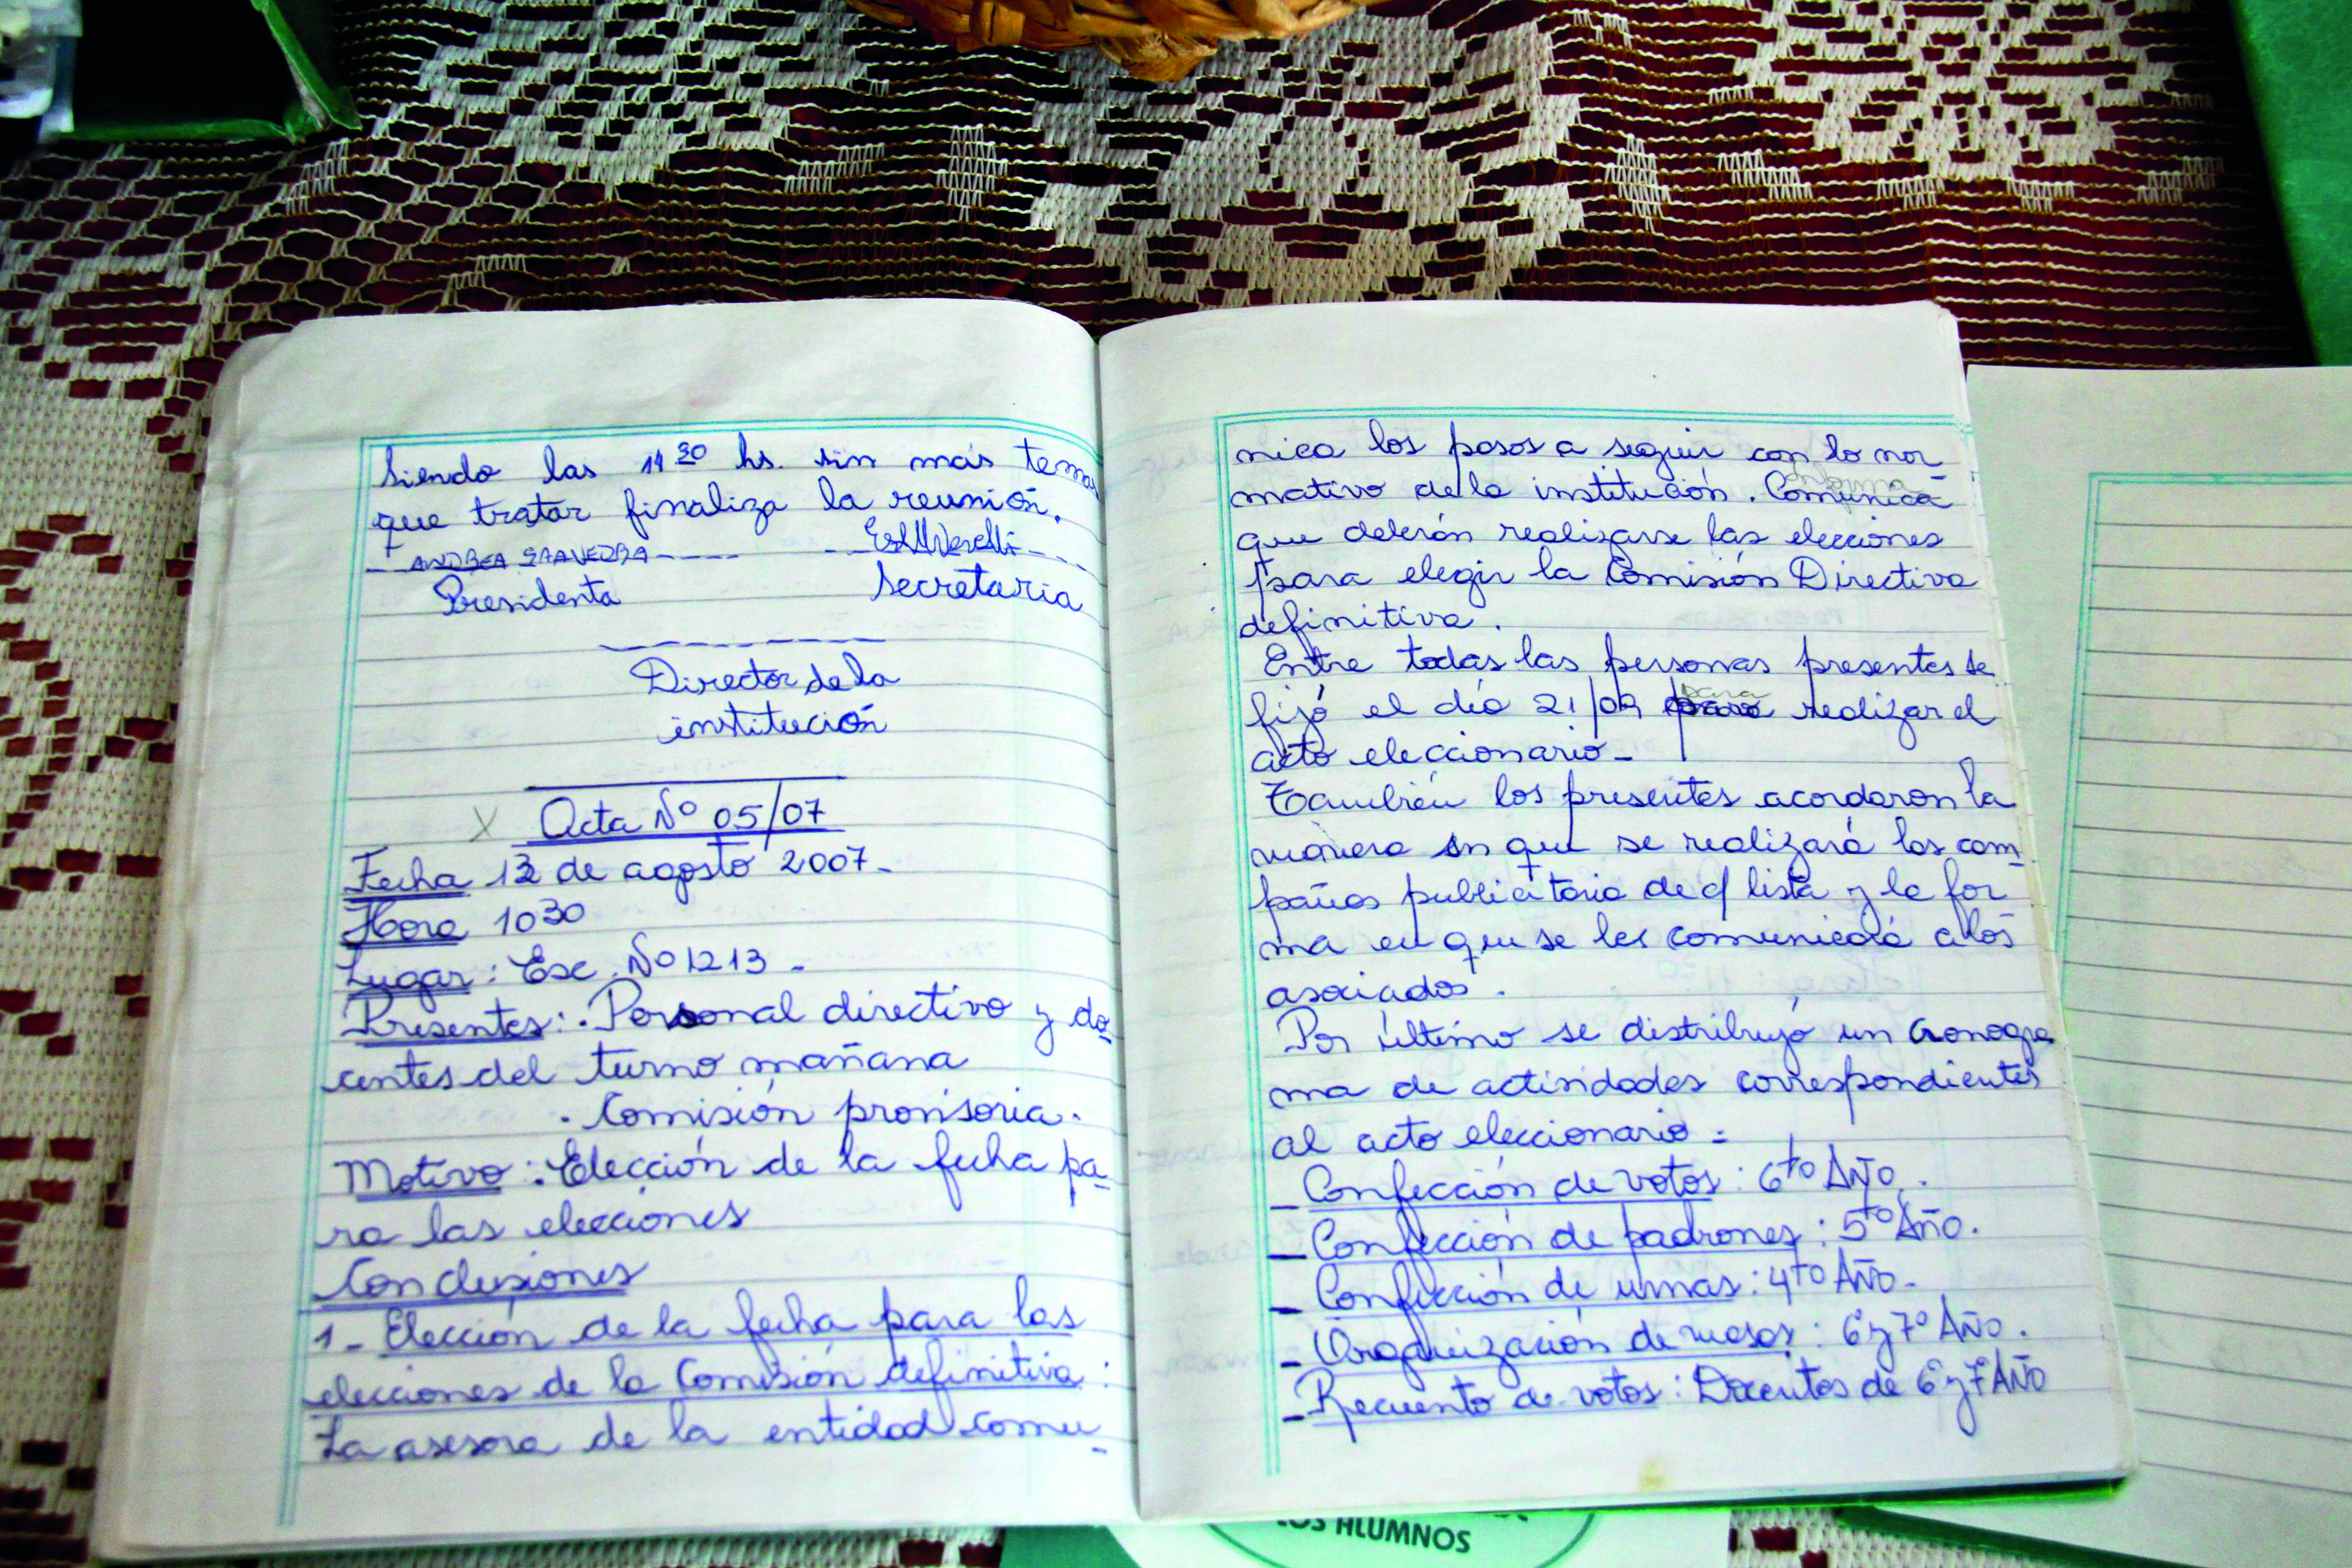 Siendo las 14 30 hs. sin más temas
que tratar finaliza la reunión.
ANDREA SAAVEDRA
Presidenta Secretaria
Director de la
institución
X Acta Nº 05/07
Fecha 13 de agosto 2007-
Hora 10 30
Lugar: Esc. Nº 1213 -
Presentes: . Personal directivo y do-
centes del turno mañana
. Comisión provisoria.
Motivo: Elección de la fecha pa-
ra las elecciones
Conclusiones
1- Elección de la fecha para las
elecciones de la Comisión definitiva:
La asesora de la entidad comu-
nica los pasos a seguir con lo nor
mativo de la institución. Comunica
que deberán realizarse las elecciones
para elegir la Comisión Directiva
definitiva.
Entre todas las personas presentes se
fijó el día 21/09 para realizar el
acto eleccionario-
También los presentes acordaron la
manera en que se realizará las cam-
pañas publicitaria de c/ lista y la for
ma en que se les comunicará a los
asociados.
Por último se distribuyó un cronogra
ma de actividades correspondientes
al acto eleccionario:
- Confección de votos: 6to Año.
- Confección de padrones: 5to Año.
- Confección de urnas: 4to Año.
- Organización de mesas: 6º y 7º Año.
- Recuento de votos: Docentes de 6º y 7º Año
LOS ALUMNOS